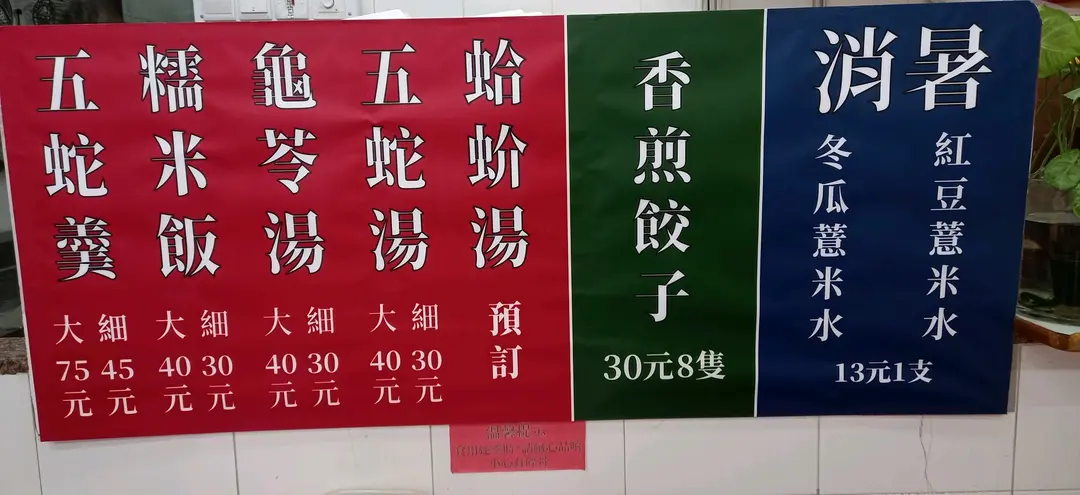 五蛇羹
大75元
細45元
糯米飯
大40元
細30元
龜苓湯
大40元
細30元
五蛇湯
大40元
細30元
蛤蚧湯
預訂
香煎餃子
30元8隻
消暑
冬瓜薏米水
紅豆薏米水
13元1支
溫馨提示